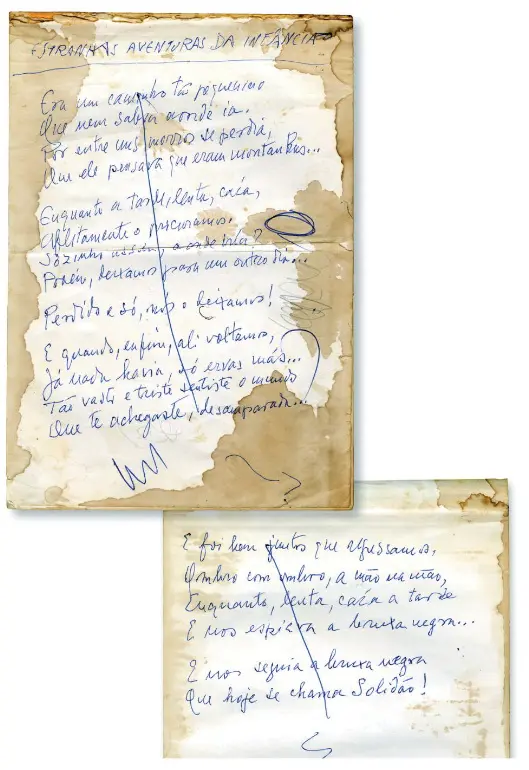 ESTRANHAS AVENTURAS DA INFÂNCIA
Era um caminho tão pequenino
Que nem sabia aonde ia.
Por entre uns morros se perdia,
Que ele pensava que eram montanhas...
Enquanto a tarde, lenta, caía,
Aflitamente o procuramos.
Sozinho assim aonde iria?
Porém, deixamos para um outro dia...
Perdido e só, nós o deixamos!
E quando, enfim, ali voltamos,
Já nada havia, só ervas más...
Tão vasto e triste sentiste o mundo
Que te achegaste, desamparada...
E foi bem juntos que regressamos,
Ombro com ombro, a mão na mão,
Enquanto, lenta, caía a tarde
E nos espiava a bruxa negra...
E nos seguia a bruxa negra
Que hoje se chama Solidão!